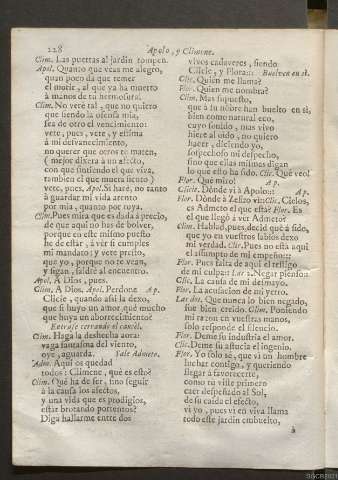 228
Apolo, y Climene.
Clim. Las puertas al jardin rompen.
Apol. Quanto que veas me alegro,
quan poco dà que temer
el morir, al que ya ha muerto
à manos de tu hermosura.
Clim. No verè tal, que no quiero
que siendo la ofensa mia,
sea de otro el vencimiento:
vete, pues, vete, y estima
à mi desvanecimiento,
no querer que otros te maten
( mejor dixera à un afecto,
con que sintiendo el que viva,
tambien el que muera siento )
vete, pues. Apol. Si harè, no tanto
à guardar mi vida atento
por mia, quanto por tuya.
Clim. Pues mira que es dada à precio,
de que aqui no has de bolver,
porque en este mismo puesto
he de estàr, à vèr si cumples
mi mandato; y vete presto,
que yo, porque no te vean,
y sigan, saldrè al encuentro.
Apol. A Dios, pues.
Clim. A Dios. Apol. Perdone Ap.
Clicie, quando assi la dexo,
que si huyo un amor, què mucho
que huya un aborrecimiento?
Entrase cerrando el cancèl.
Clim. Haga la deshecha aora:
vaga fantasma del viento,
oye, aguarda. Sale Admeto.
Adm. Aqui os quedad
todos: Climene, què es esto?
Clim. Què ha de ser, sino seguir
à la causa los afectos,
y una vida que es prodigios,
estàr brotando portentos?
Diga hallarme entre dos
vivos cadaveres, siendo
Clicie, y Flora::: Buelven en sì.
Clic. Quien me llama?
Flor. Quien me nombra?
Clim. Mas supuesto,
que à su nòbre han buelto en sì,
bien como natural eco,
cuyo sonido, mas vivo
hiere al oìdo, no quiero
hacer, diciendo yo,
sospechoso mi despecho,
sino que ellas mismas digan
lo que esto ha sido. Clic. Què veo!
Flor. Què miro! Ap.
Clic. Dònde vi à Apolo::: Ap.
Flor. Dònde à Zefiro vi::: Clic. Cielos,
es Admeto el que està? Flor. Es
el que llegò à vèr Admeto?
Clim. Hablad, pues, decid què à sido,
que yo en vuestros labios dexo
mi verdad. Clic. Pues no està aqui
el assumpto de mi empeño:::
Flor. Pues falta de aqui el testigo
de mi culpa: Las 2. Negar pienso.
Clic. La causa de mi desmayo.
Flor. La acusacion de mi yerro.
Las dos. Que nunca lo bien negado,
fue bien creìdo. Clim. Poniendo
mi razon en vuestras manos,
solo responde el silencio.
Flor. Deme su industria el amor.
Clic. Deme su astucia el ingenio.
Flor. Yo sólo sè, que vi un hombre
luchar contigo, y queriendo
llegar à favorecerte,
como tu viste primero
caer despeñado al Sol,
de su caìda el efecto,
vi yo, pues vi en viva llama
todo este jardin embuelto,
à